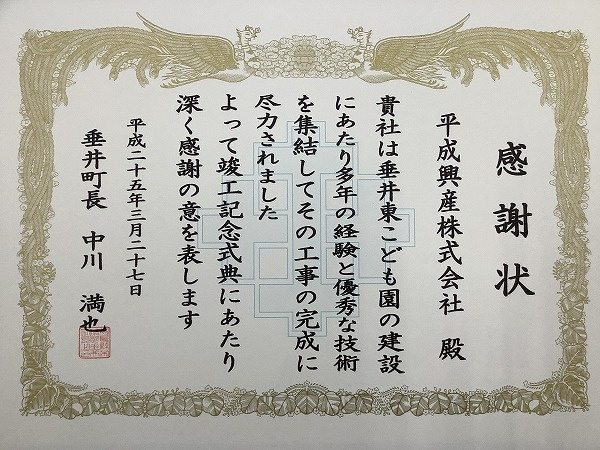 感謝状
平成興産株式会社 殿
貴社は垂井東こども園の建設
にあたり多年の経験と優秀な技術
を集結してその工事の完成に
尽力されました
よって竣工記念式典にあたり
深く感謝の意を表します
平成二十五年三月二十七日
垂井町長 中川 満也